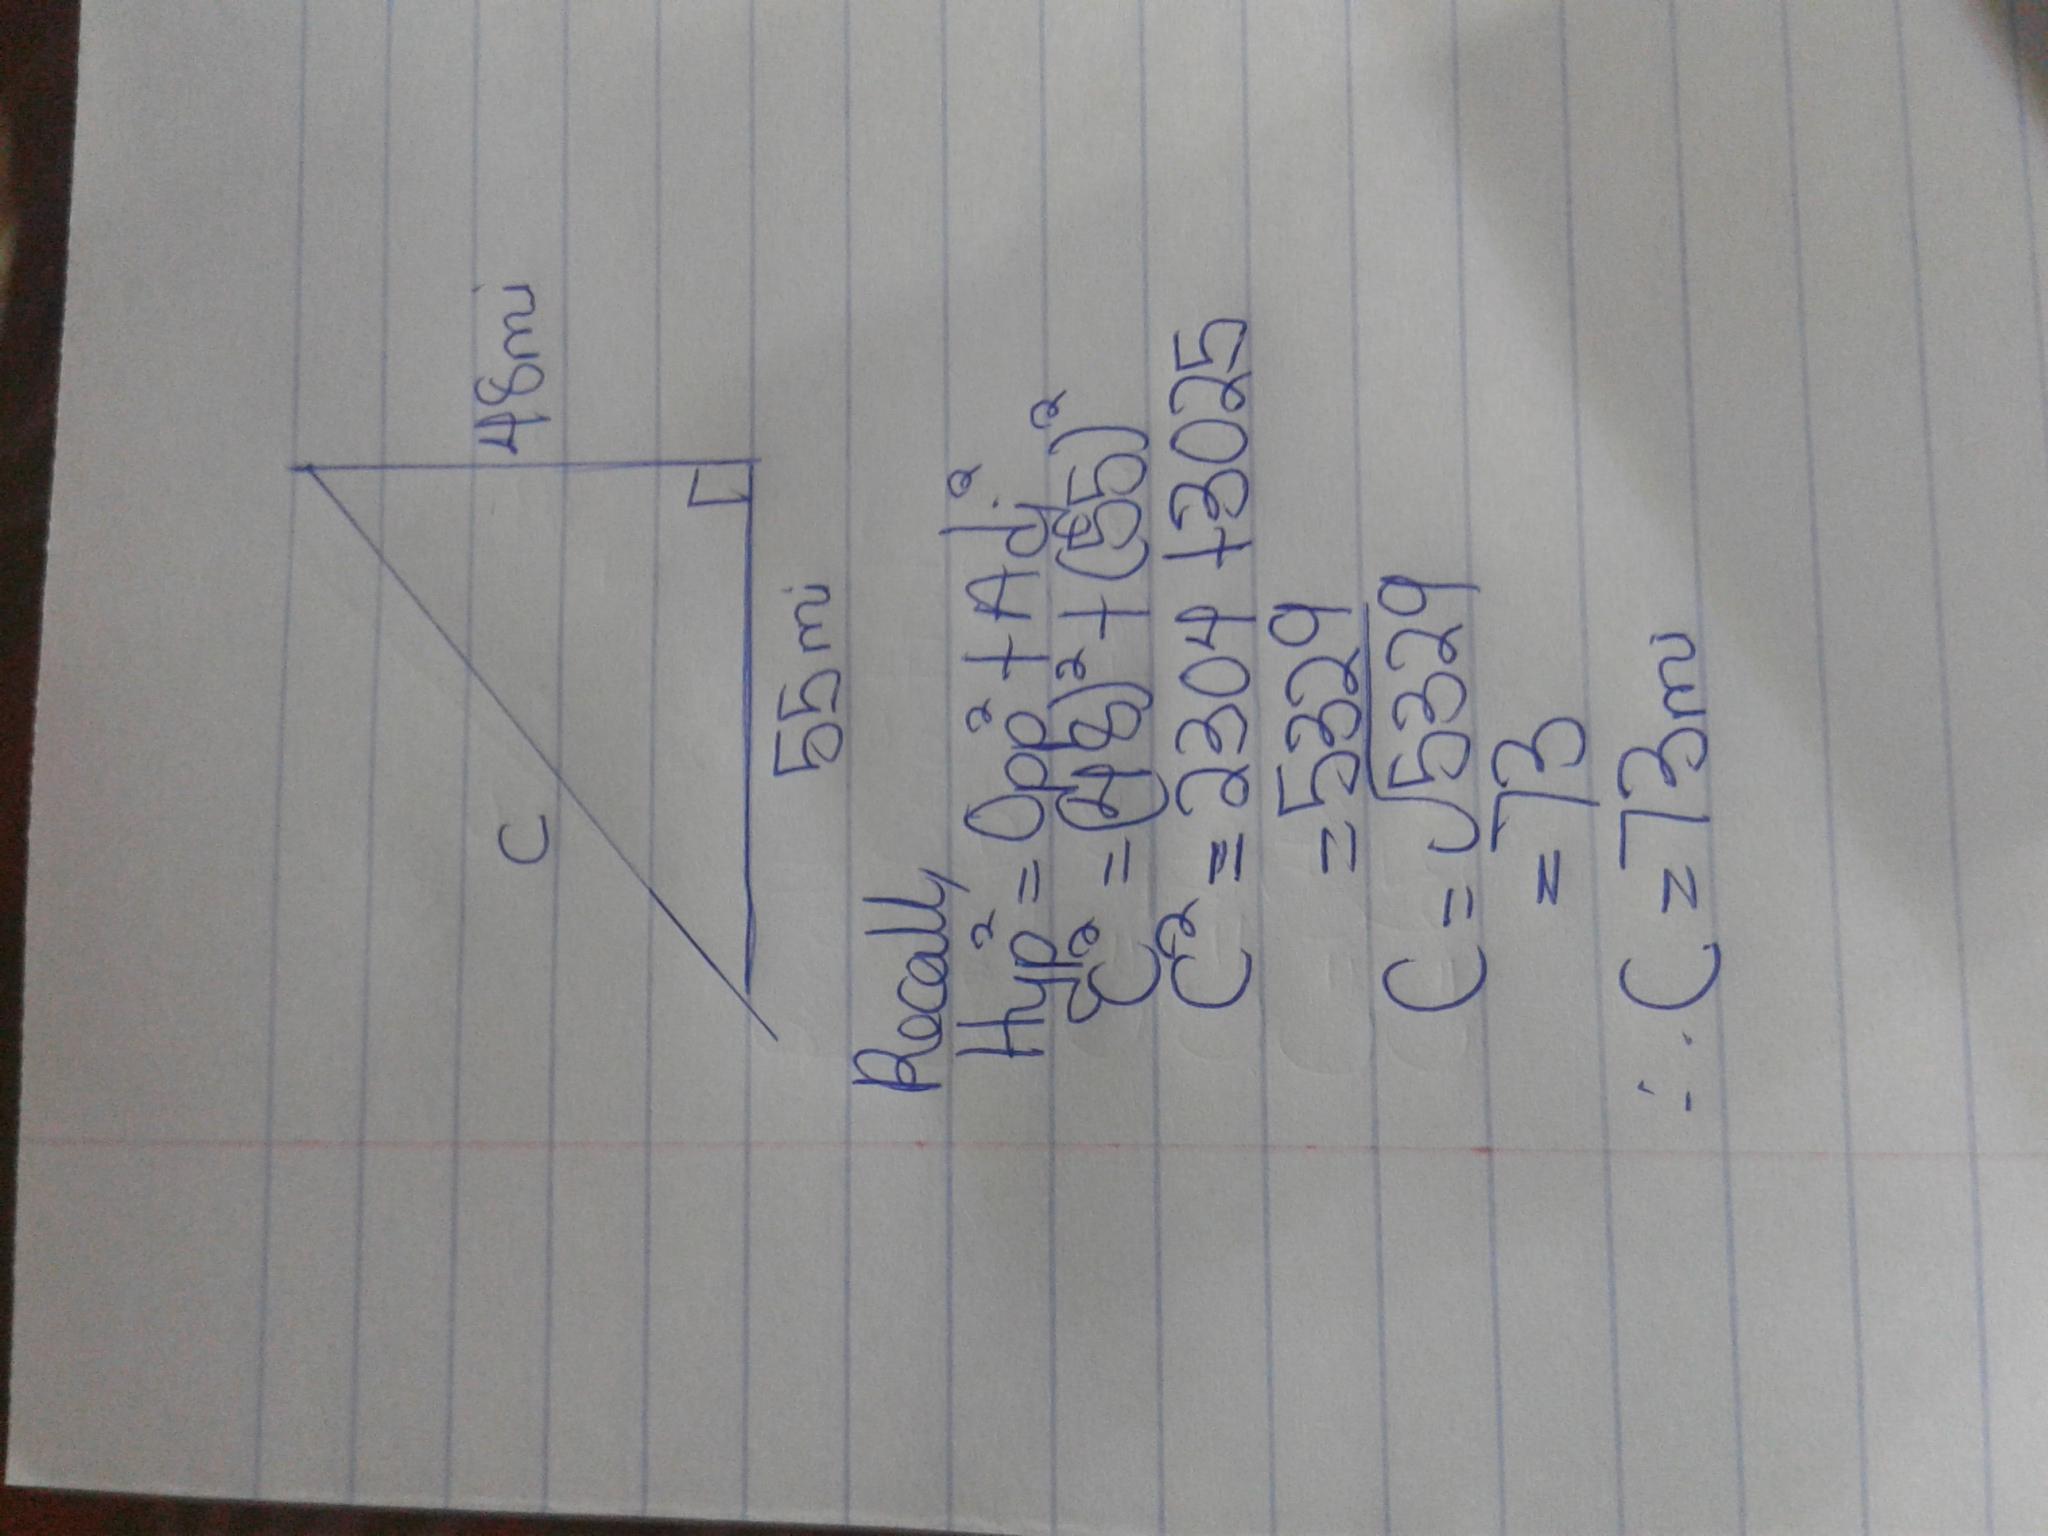 48mi
C
55mi
Recall,
Hyp² = Opp² + Adj²
C² = (48)² + (55)²
C² = 2304 + 3025
= 5329
C = √5329
= 73
∴ C = 73mi